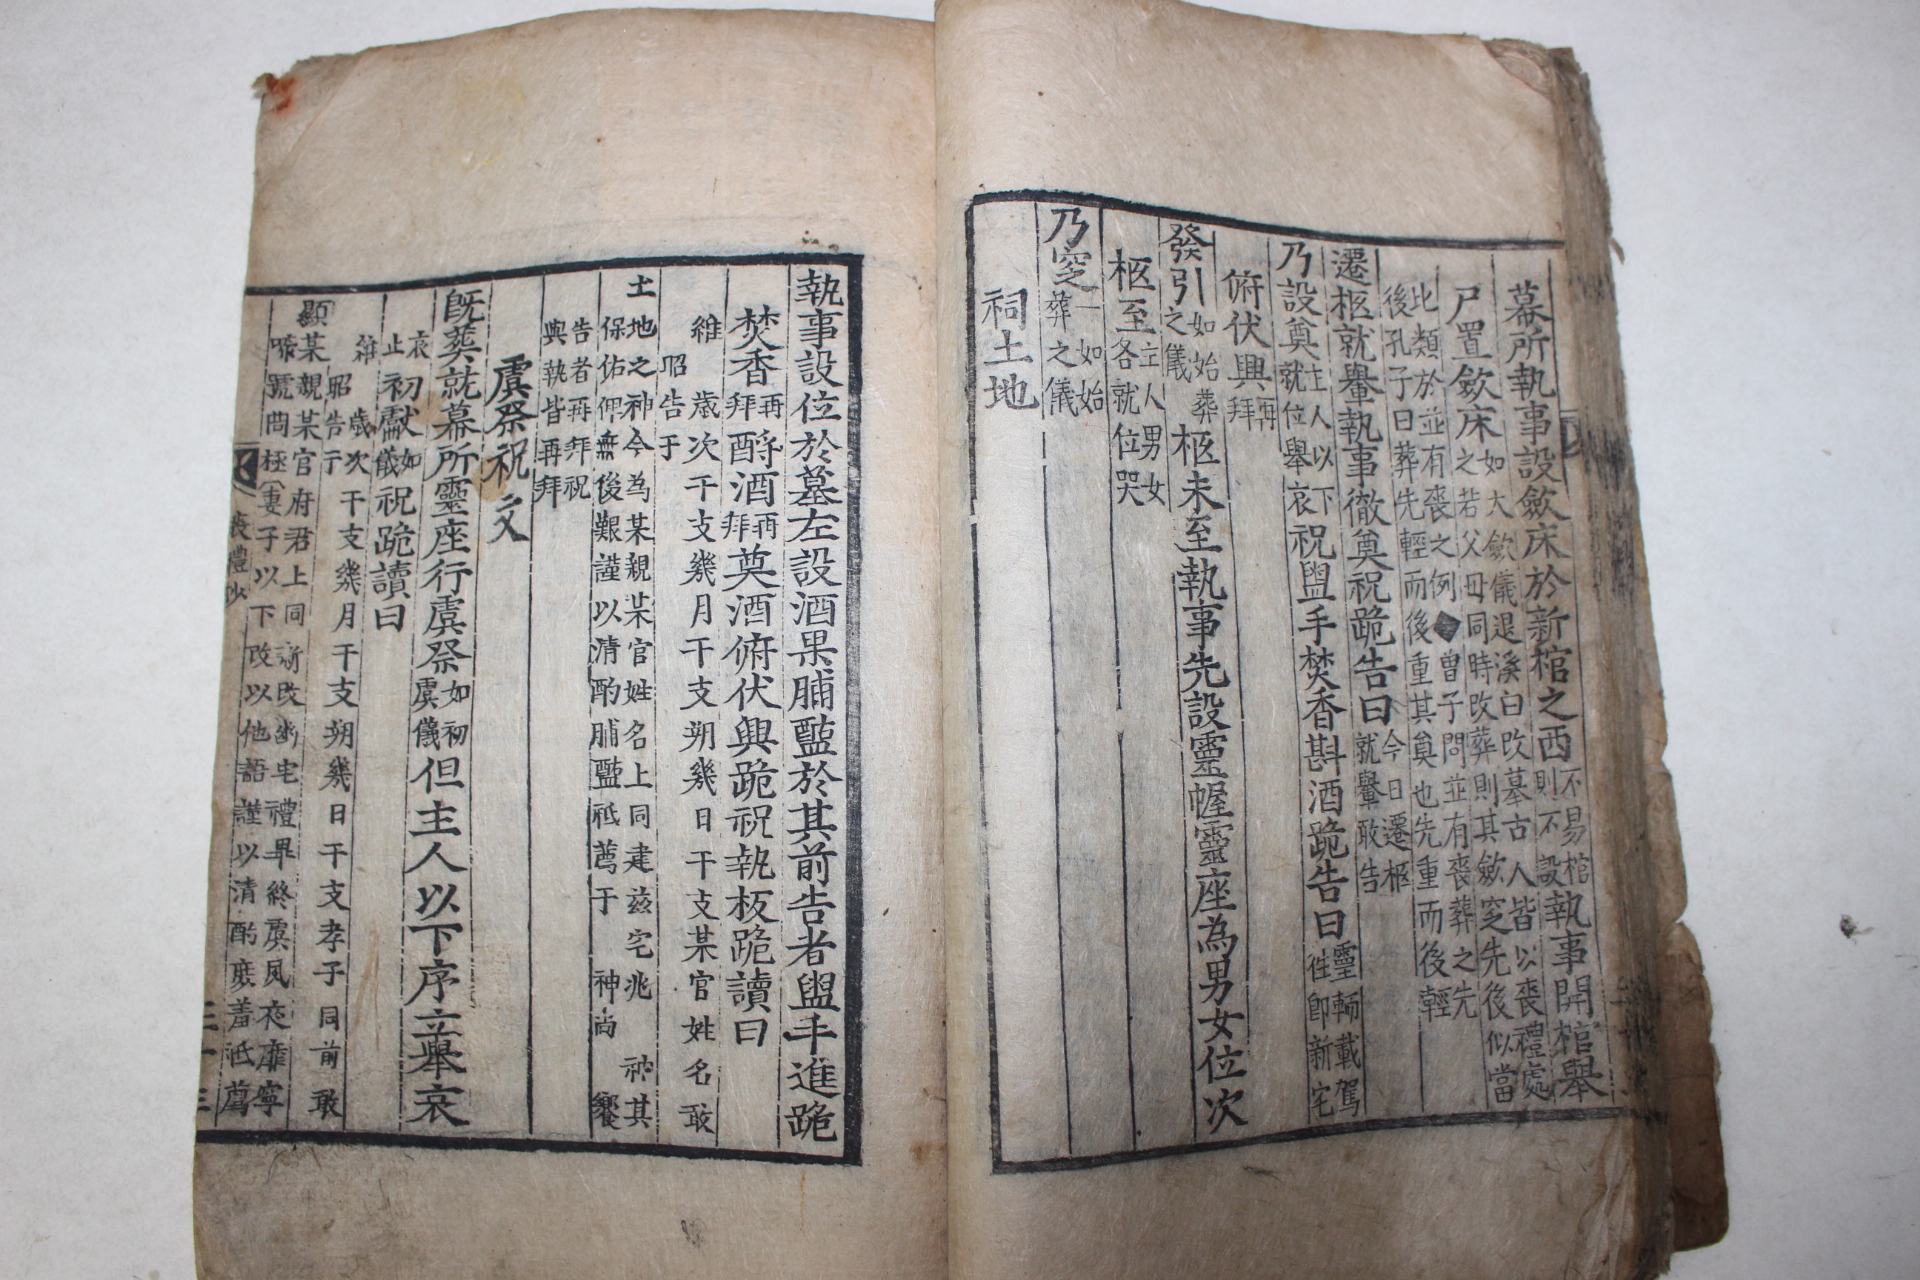 幕所執事設斂床於新棺之西不易棺則不設執事開棺舉
尸置斂床之如大斂儀退溪曰改墓古人皆以喪禮處之若父母同時改葬則其斂窆先後似當
比類於並有喪之例◆曾子問並有喪葬之先後孔子曰葬先輕而後重其奠也先重而後輕
遷柩就轝執事徹奠祝跪告曰今日遷柩就轝敢告
乃設奠主人以下就位舉哀祝盥手焚香斟酒跪告曰靈輀載駕徃卽新宅
俯伏興再拜
發引如始葬之儀柩未至執事先設靈幄靈座為男女位次
柩至主人男女各就位哭
乃窆一如始葬之儀
祠土地
執事設位於墓左設酒果脯醢於其前告者盥手進跪
焚香再拜酹酒再拜奠酒俯伏興跪祝執板跪讀曰
維 歲次干支幾月干支朔幾日干支某官姓名敢
昭告于
土地之神今為某親某官姓名上同建玆宅兆 神其
保佑俾無後艱謹以清酌脯醢祗薦于 神尚 饗
告者再拜祝與執皆再拜
虞祭祝文
旣葬就幕所靈座行虞祭如初虞儀但主人以下序立舉哀
哀止初獻如儀祝跪讀曰
維 歲次干支幾月干支朔幾日干支孝子同前敢
昭告于
顯某親某官府君上同新改幽宅禮畢終虞夙夜靡寧
啼號罔極妻子以下改以他語謹以清酌庶羞祗薦
喪禮抄